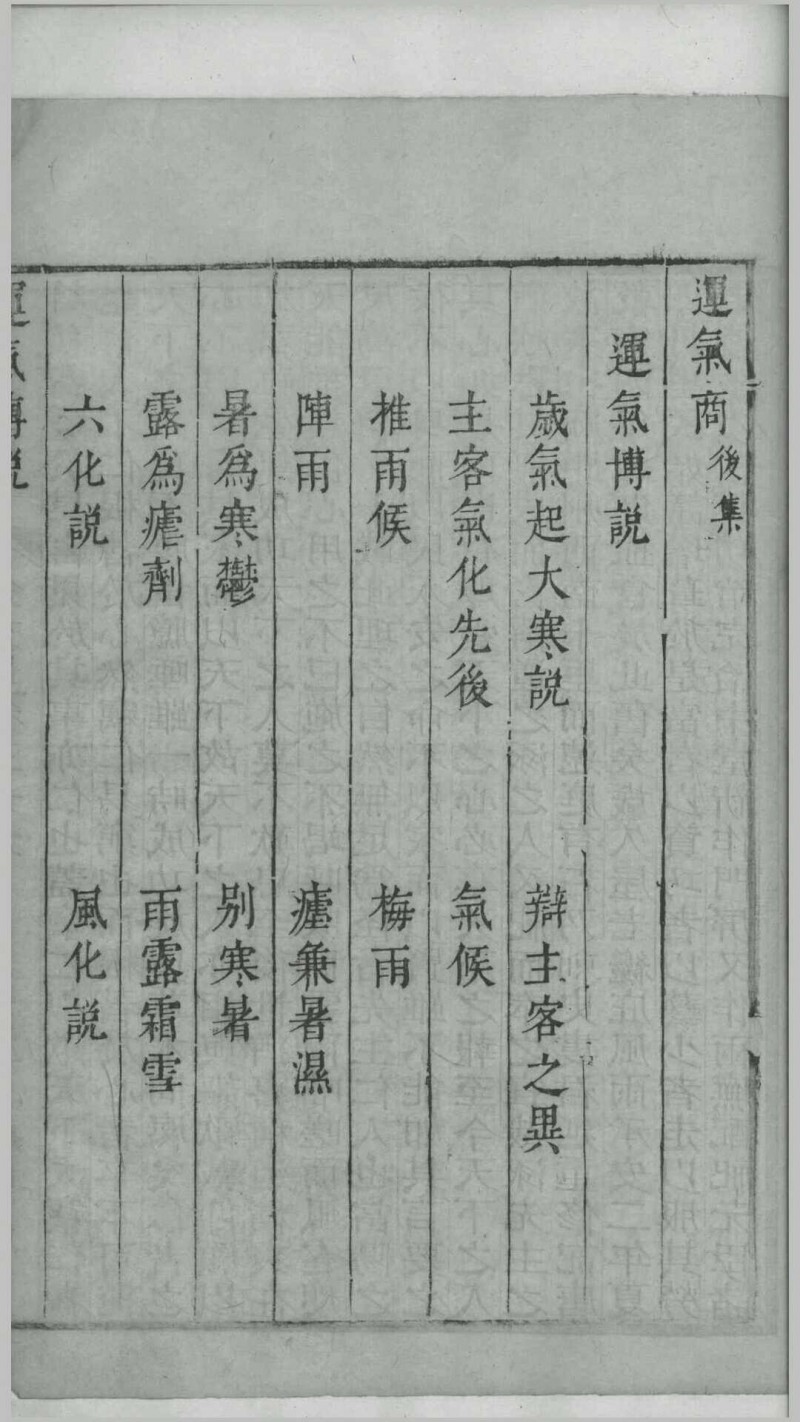 運氣商後集
運氣博説
歲氣起大寒説　辯主客之異
主客氣化先後　氣候
推雨候　梅雨
陣雨　瘧兼暑濕
暑爲寒鬱　别寒暑
露爲瘧劑　雨露霜雪
六化説　風化説
運氣博説